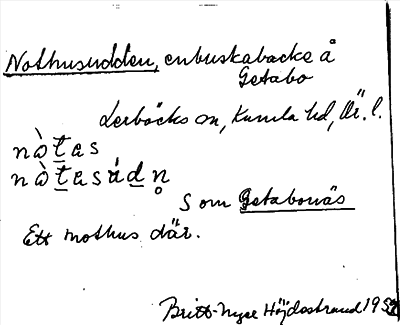 Nothusudden, enbuskabacke å
Getabo
Lerbäcks sn, Kumla hd, Ör. l.
nòt̲as
nòt̲asùd̲n̥
som Getabonäs
Ett nothus där.
Britt-Höjdestrand 195